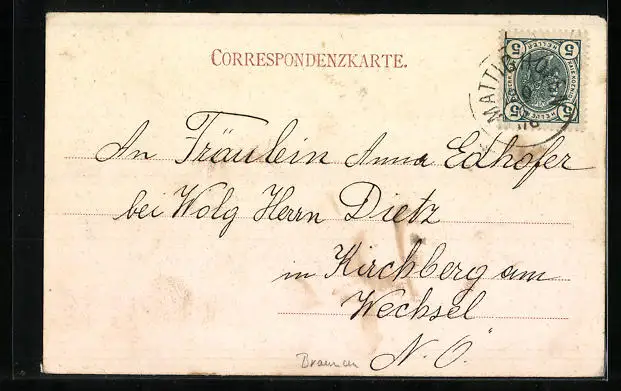 CORRESPONDENZKARTE.
5 HELLER 5
MATTIGHOFEN
An Fräulein Anna Edhofer
bei Wolg Herrn Dietz
in Kirchberg am
Wechsel
N. Ö.